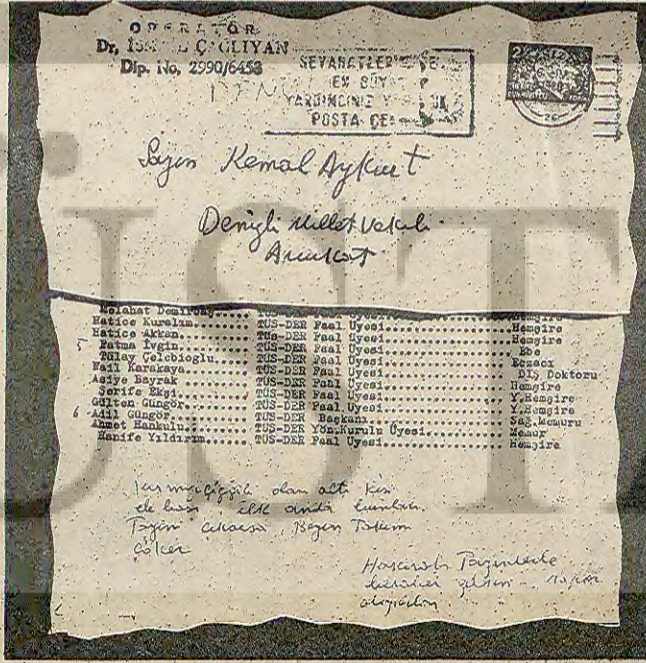 OPERATÖR
Dr. ÇAĞLIYAN
Dip. No. 2990/6453
SEYAHATLERİNİZDE
EN BÜYÜK
YARDIMCINIZ
POSTA ÇEKİ
Sayın Kemal Aykurt
Denizli Millet Vekili
Avukat
Melahat Demirbaş
Hatice Kuralım....... TÜS-DER Faal Üyesi............... Hemşire
Hatice Akkan......... TÜS-DER Faal Üyesi............... Hemşire
5 Fatma İvgin.......... TÜS-DER Faal Üyesi............... Ebe
Tülay Çelebioğlu..... TÜS-DER Faal Üyesi............... Eczacı
Nail Karakaya........ TÜS-DER Faal Üyesi............... Diş Doktoru
Asiye Bayrak ........ TÜS-DER Faal Üyesi............... Hemşire
Şerife Ekşi.......... TÜS-DER Faal Üyesi............... Y.Hemşire
Gülten Güngör........ TÜS-DER Faal Üyesi............... Y.Hemşire
6 Adil Güngör.......... TÜS-DER Başkanı................. Sağ.Memuru
Ahmet Hankulu........ TÜS-DER Yön.Kurulu Üyesi......... Memur
Hanife Yıldırım...... TÜS-DER Faal Üyesi............... Hemşire
Kırmızı çizgili olan altı kişi
ele başı ilk anda bunların
Tayini çıkarsa, Beyin Takımı
çöker
Tayinlerde
beraber gelsin